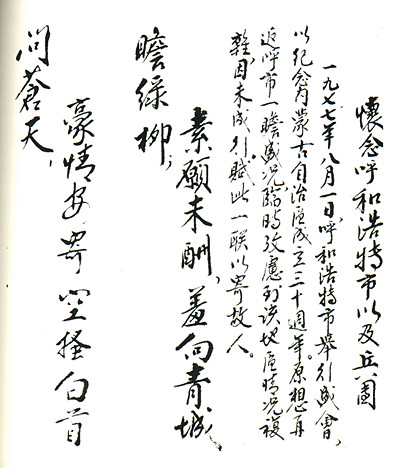 懷念呼和浩特市以及兵團
一九七七年八月一日,呼和浩特市舉行盛會,
以紀念內蒙古自治區成立三十週年。原想再
返呼市一瞻盛況,臨時攷慮到該地區情況複
雜因未成行,賦此一聯以寄故人。
素願未酬,羞向青城
瞻綠柳,
豪情安寄空搔白首
問蒼天,